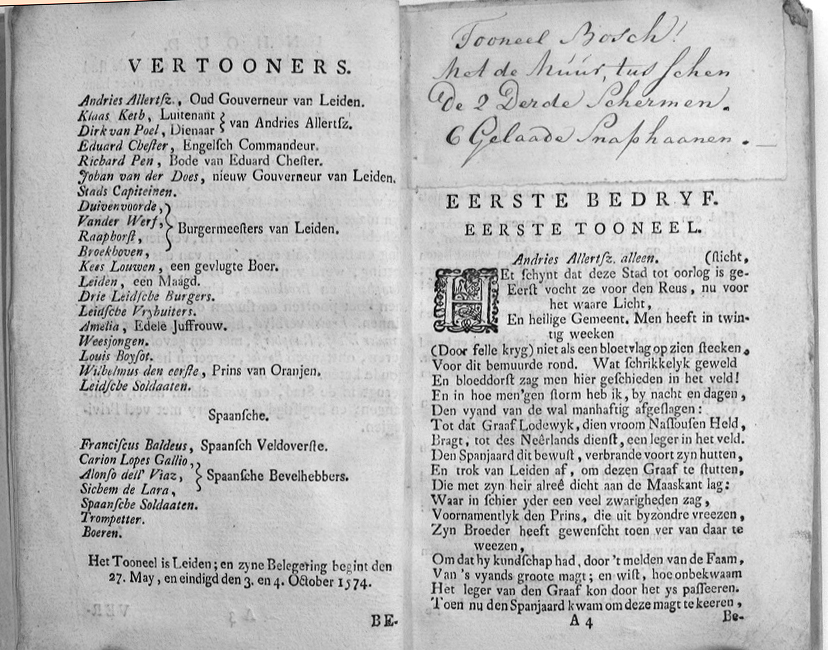 VERTOONERS.
Andries Allertsz., Oud Gouverneur van Leiden.
Klaas Ketb, Luitenant
Dirk van Poel, Dienaar } van Andries Allertsz.
Eduard Chester, Engelsch Commandeur.
Richard Pen, Bode van Eduard Chester.
Johan van der Does, nieuw Gouverneur van Leiden.
Stads Capiteinen.
Duivenvoorde,
Vander Werf,
Raaphorst, } Burgermeesters van Leiden.
Broekhoven,
Kees Louwen, een gevlugte Boer.
Leiden, een Maagd.
Drie Leidsche Burgers.
Leidsche Vrybuiters.
Amelia, Edele Juffrouw.
Weesjongen.
Louis Boysot.
Wilhelmus den eerste, Prins van Oranjen.
Leidsche Soldaaten.
Spaansche.
Franciscus Baldeus, Spaansch Veldoverste.
Carion Lopes Gallio,
Alonso dell' Viaz, } Spaansche Bevelhebbers.
Sichem de Lara,
Spaansche Soldaaten.
Trompetter.
Boeren.
Het Tooneel is Leiden; en zyne Belegering begint den
27. May, en eindigd den 3. en 4. October 1574.
BE-
Tooneel Bosch!
Met de Múúr, tusschen
de 2 Derde Schermen.
6 Gelaade Snaphaanen.
EERSTE BEDRYF.
EERSTE TOONEEL.
Andries Allertsz. alleen. (sticht,
HEt schynt dat deze Stad tot oorlog is ge-
Eerst vocht ze voor den Reus, nu voor
het waare Licht,
En heilige Gemeent. Men heeft in twin-
tig weeken
(Door felle kryg) niet als een bloetvlag op zien steeken,
Voor dit bemuurde rond. Wat schrikkelyk geweld
En bloeddorst zag men hier geschieden in het veld!
En in hoe men'gen storm heb ik, by nacht en dagen,
Den vyand van de wal manhaftig afgeslagen:
Tot dat Graaf Lodewyk, dien vroom Nassousen Held,
Bragt, tot des Neêrlands dienst, een leger in het veld.
Den Spanjaard dit bewust, verbrande voort zyn hutten,
En trok van Leiden af, om dezen Graaf te stutten,
Die met zyn heir alreê dicht aan de Maaskant lag:
Waar in schier yder een veel zwarigheden zag,
Voornamentlyk den Prins, die uit byzondre vreezen,
Zyn Broeder heeft gewenscht toen ver van daar te
weezen,
Om dat hy kundschap had, door 't melden van de Faam,
Van 's vyands groote magt; en wist, hoe onbekwaam
Het leger van den Graaf kon door het ys passeeren.
Toen nu den Spanjaard kwam om deze magt te keeren,
A 4 Be-